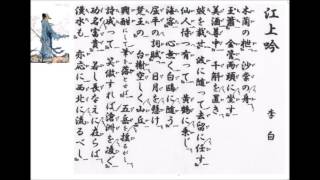 江上吟
李白
木蘭の枻 沙棠の舟
玉簫 金管 兩頭に坐す
美酒尊中 千斛を置き
妓を載せ 波に随って 去留に任す
仙人待つ有って 黄鶴に乗じ
海客 心無くして 白鷗に随う
屈平の詞賦は 日月を懸け
楚王の臺榭 空しく山丘
興酣にして筆を落せば 五岳を搖がし
詩成って 笑傲すれば滄洲を凌ぐ
功名富貴 若し長なえに在らば
漢水も 亦応に西北に流るべし